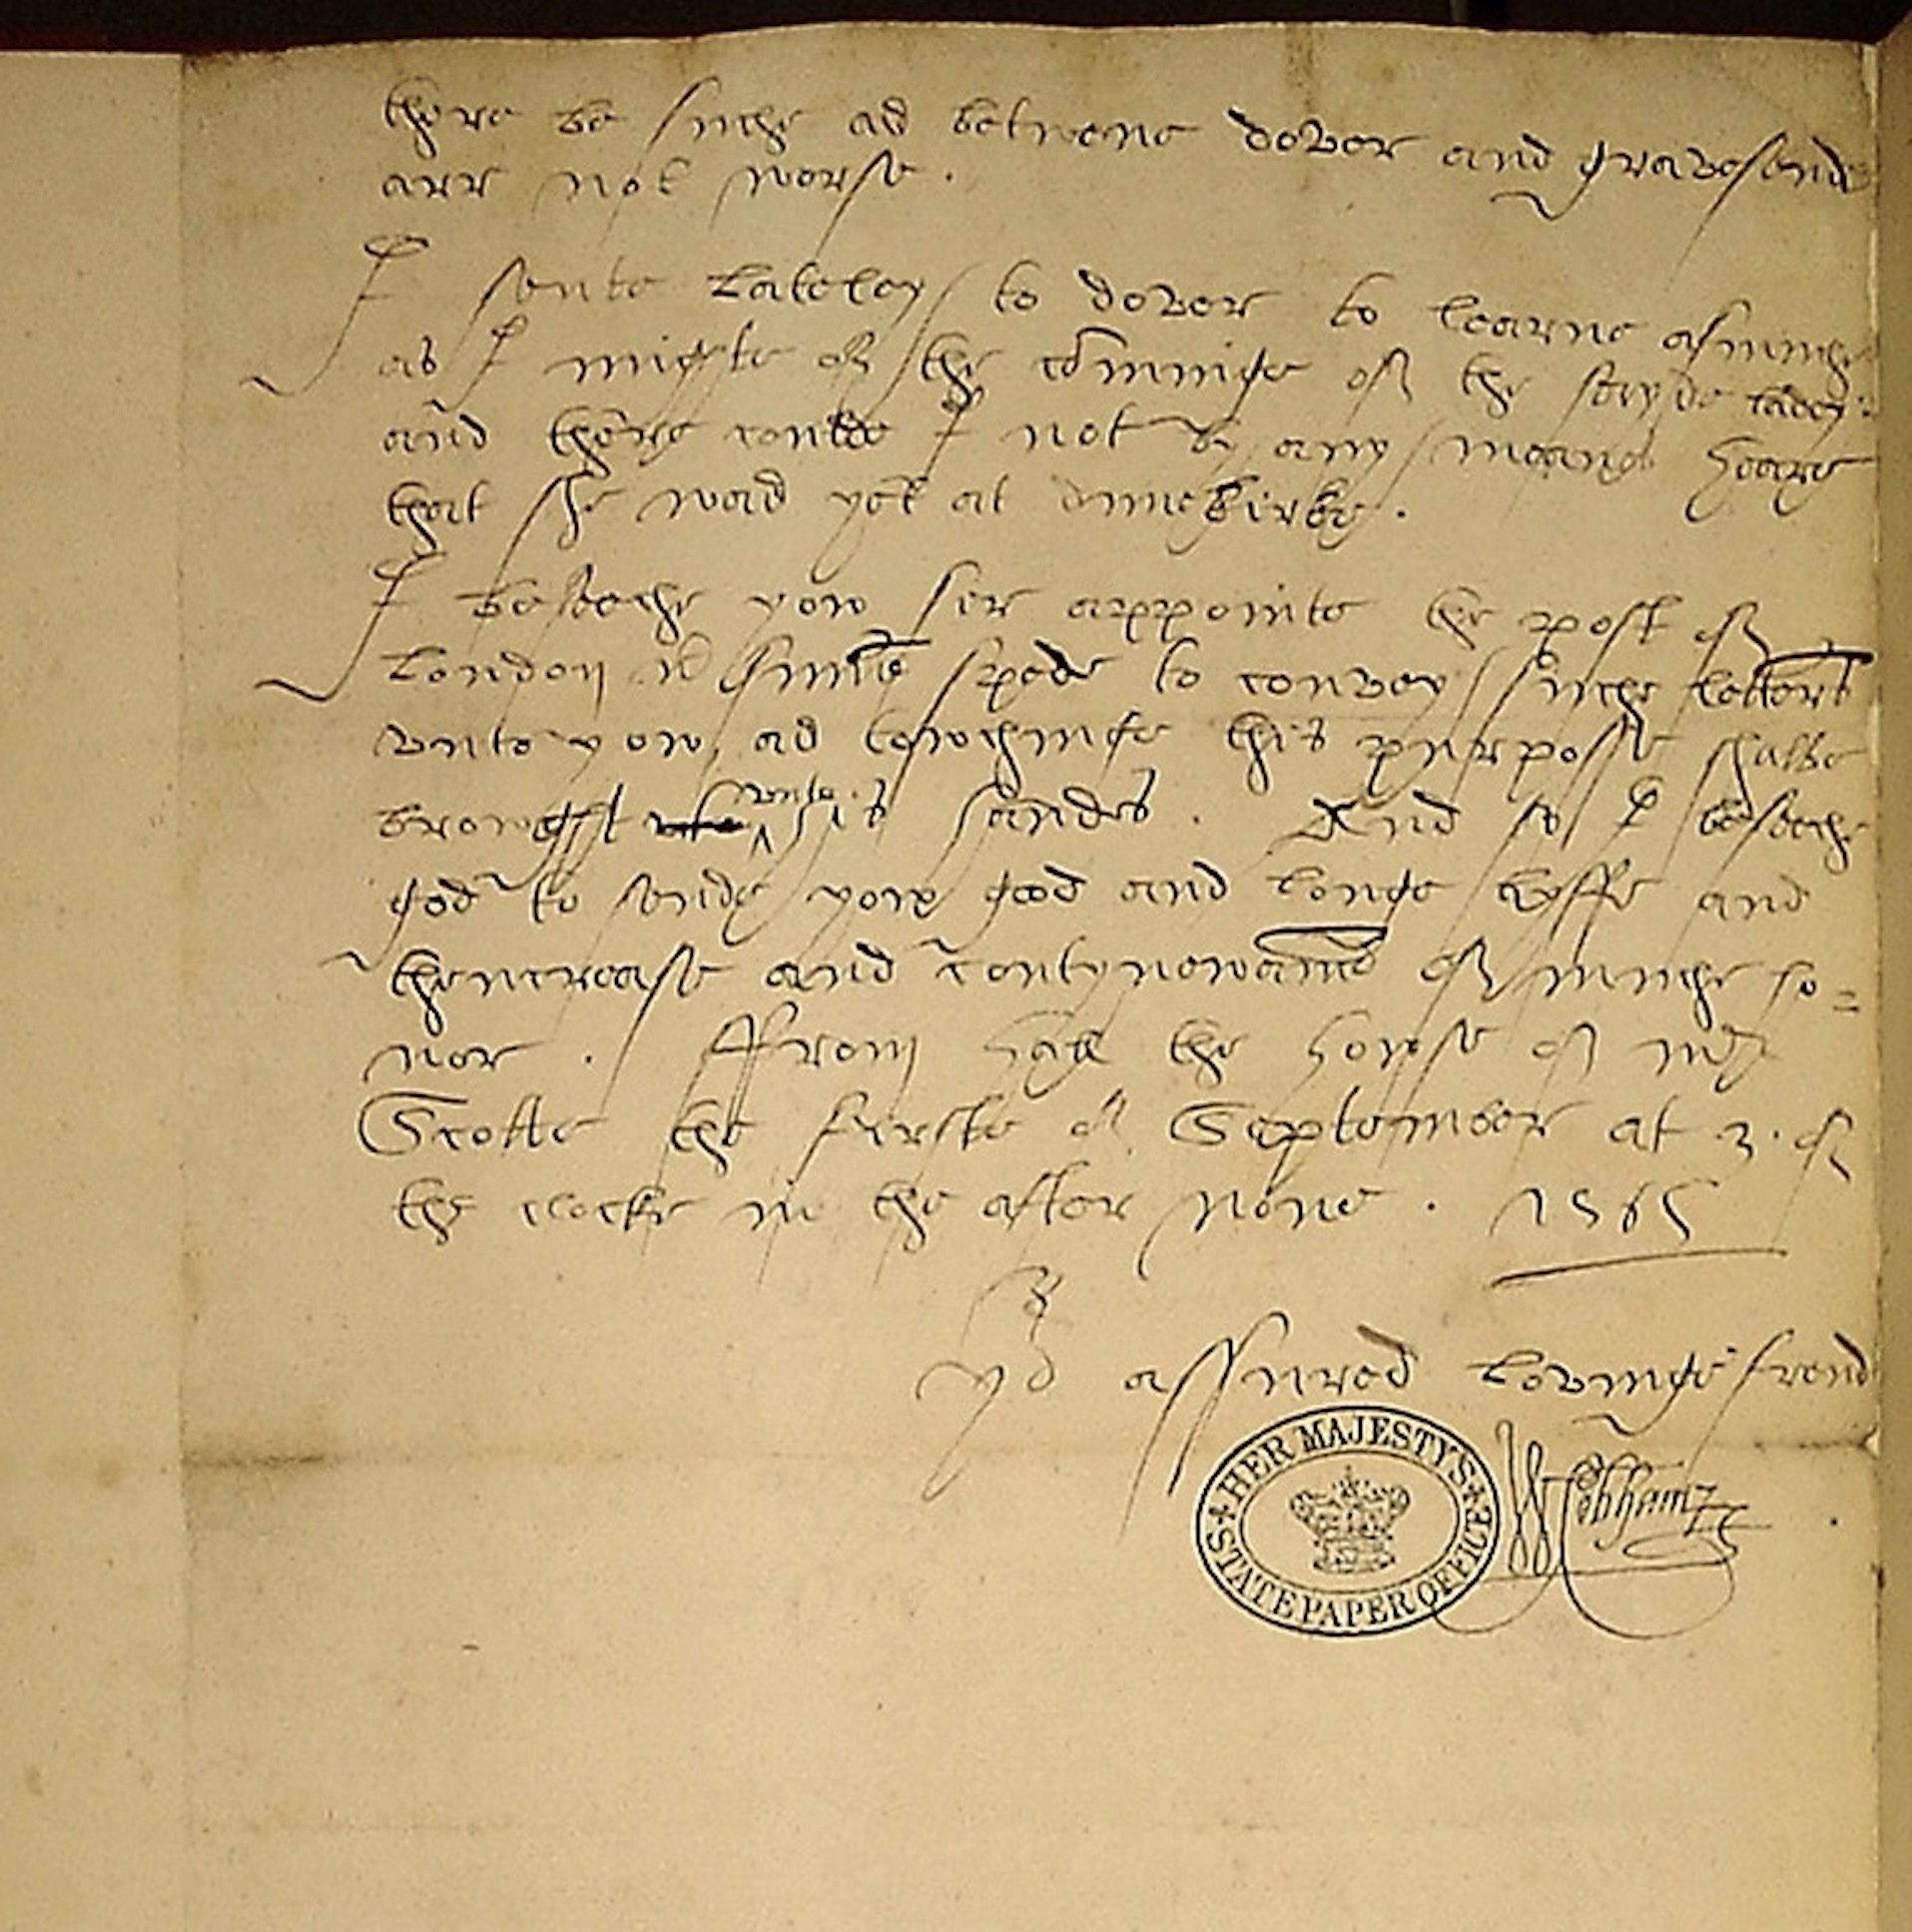 there be suche as betwene dover and gravesende
arr not worse .
I sente Lateley to dover to learne asmuche
as I mighte of the comminge of the sayde Ladey
and there coulde I not by any meanes heare
that she was yet at dunckirke .
I beseche yow ser appointe the post of
London wt suche spede to convey suche letters
unto yow, as towchinge this purposse shalbe
browght unto his handes . And so I beseche
god to sende yow good and Longe lyffe and
thencrease and contynowance of muche ho=
nor . ffrom hall the howse of mr
Scotte the firste of September at 3 . of
the clocke in the after None . 1565
yor assured Lovinge frend
W Cobham
HER MAJESTY'S STATE PAPER OFFICE